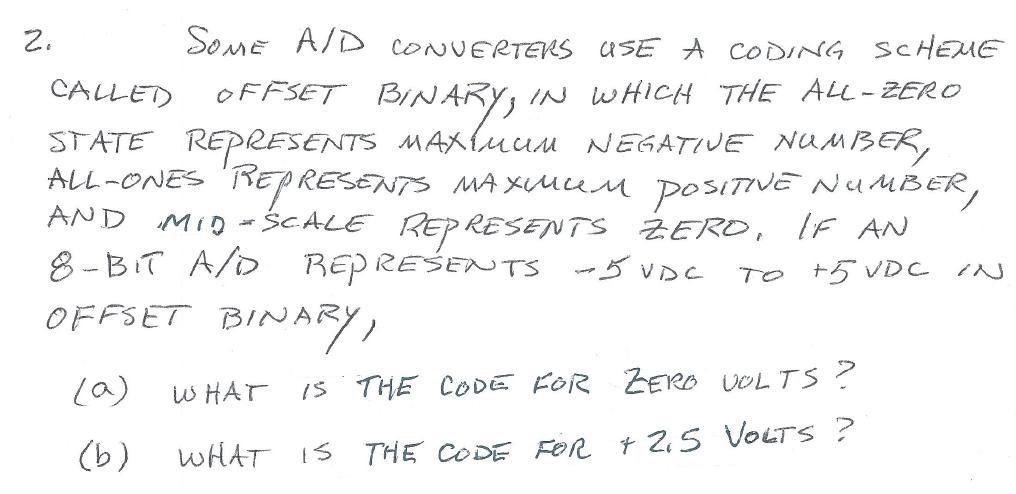 2. SOME A/D CONVERTERS USE A CODING SCHEME
CALLED OFFSET BINARY, IN WHICH THE ALL-ZERO
STATE REPRESENTS MAXIMUM NEGATIVE NUMBER,
ALL-ONES REPRESENTS MAXIMUM POSITIVE NUMBER,
AND MID-SCALE REPRESENTS ZERO. IF AN
8-BIT A/D REPRESENTS -5 VDC TO +5 VDC IN
OFFSET BINARY,
(a) WHAT IS THE CODE FOR ZERO VOLTS?
(b) WHAT IS THE CODE FOR +2.5 VOLTS?